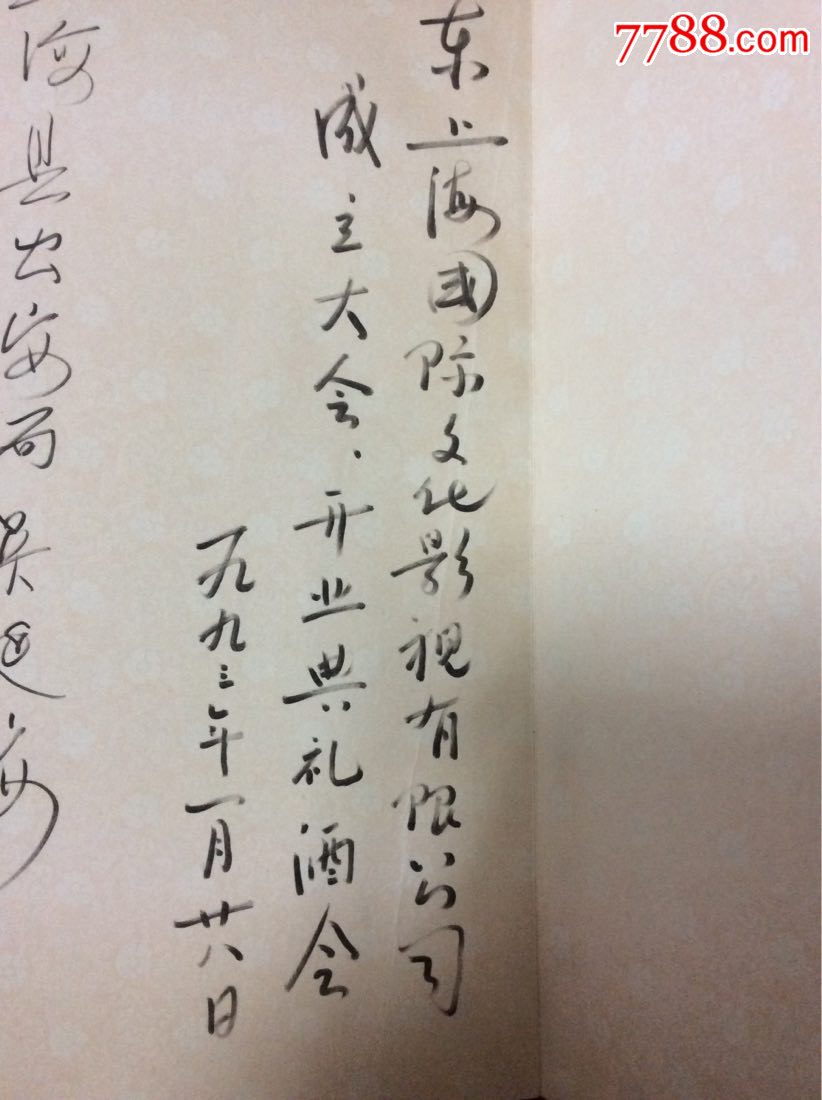 7788.com
东上海国际文化影视有限公司
成立大会、开业典礼酒会
一九九三年一月廿八日
海县公安局吴